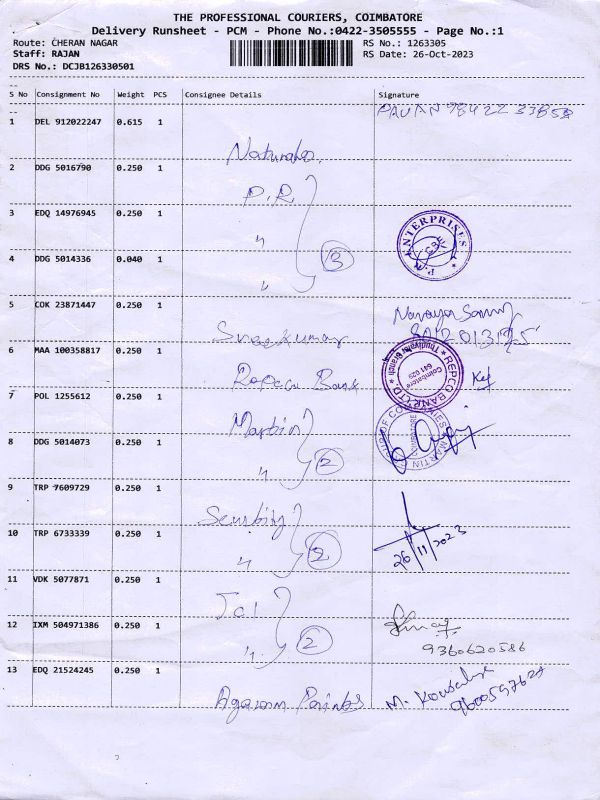 THE PROFESSIONAL COURIERS, COIMBATORE
Delivery Runsheet - PCM - Phone No.:0422-3505555 - Page No.:1
Route: CHERAN NAGAR RS No.: 1263305
Staff: RAJAN RS Date: 26-Oct-2023
DRS No.: DCJB126330501
S No Consignment No Weight PCS Consignee Details Signature
PAVAN
1 DEL 912022247 0.615 1
Naturals.
2 DDG 5016790 0.250 1
P.R
3 EDQ 14976945 0.250 1
〃
ENTERPRISES
4 DDG 5014336 0.040 1
〃 3
5 COK 23871447 0.250 1
Narayana Samy
Sreekumar
6 MAA 100358817 0.250 1
Repco Bank
REPCO BANK LTD
Thudiyalur Branch
Coimbatore
641 029
7 POL 1255612 0.250 1
Martin
MARTIN
COIMBATORE
8 DDG 5014073 0.250 1
〃 2
9 TRP 7609729 0.250 1
10 TRP 6733339 0.250 1
〃 2
26/11/2023
11 VDK 5077871 0.250 1
Jai
12 IXM 504971386 0.250 1
〃 2
9360620586
13 EDQ 21524245 0.250 1
Agaram Paints
M. Kousalya